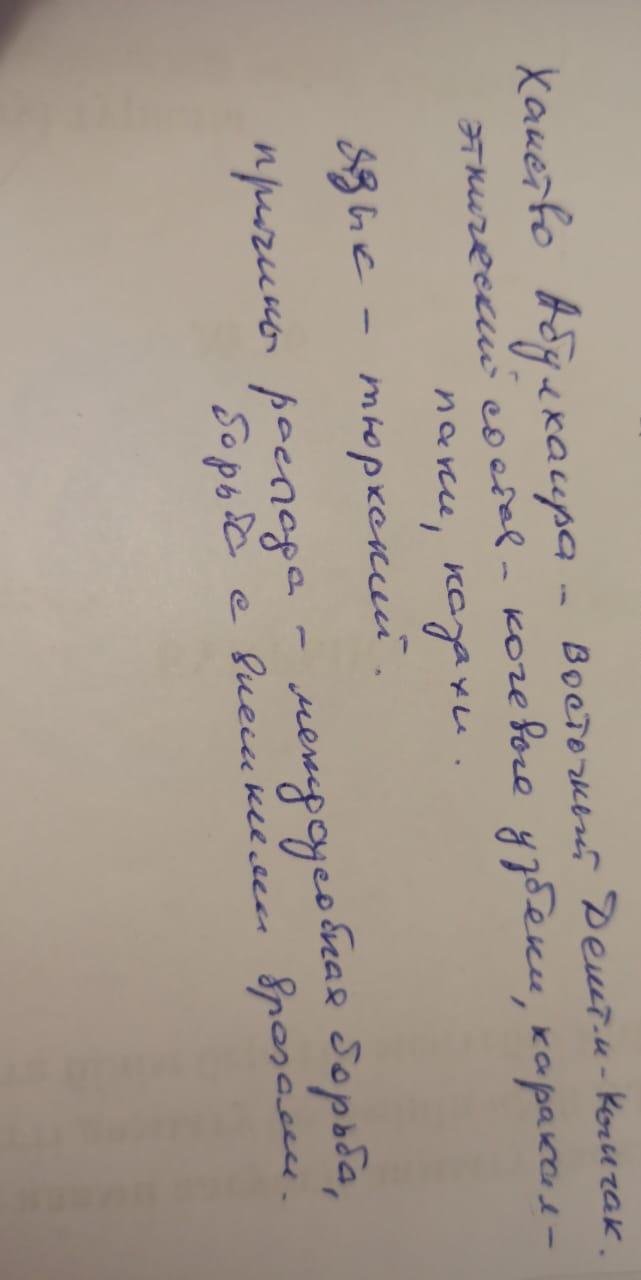 Ханство Абулхаира - Восточный Дешт-и-Кыпчак.
этнический состав - кочевые узбеки, каракал-
паки, казахи.
Язык - тюркский.
причины распада - междоусобная борьба,
борьба с внешними врагами.